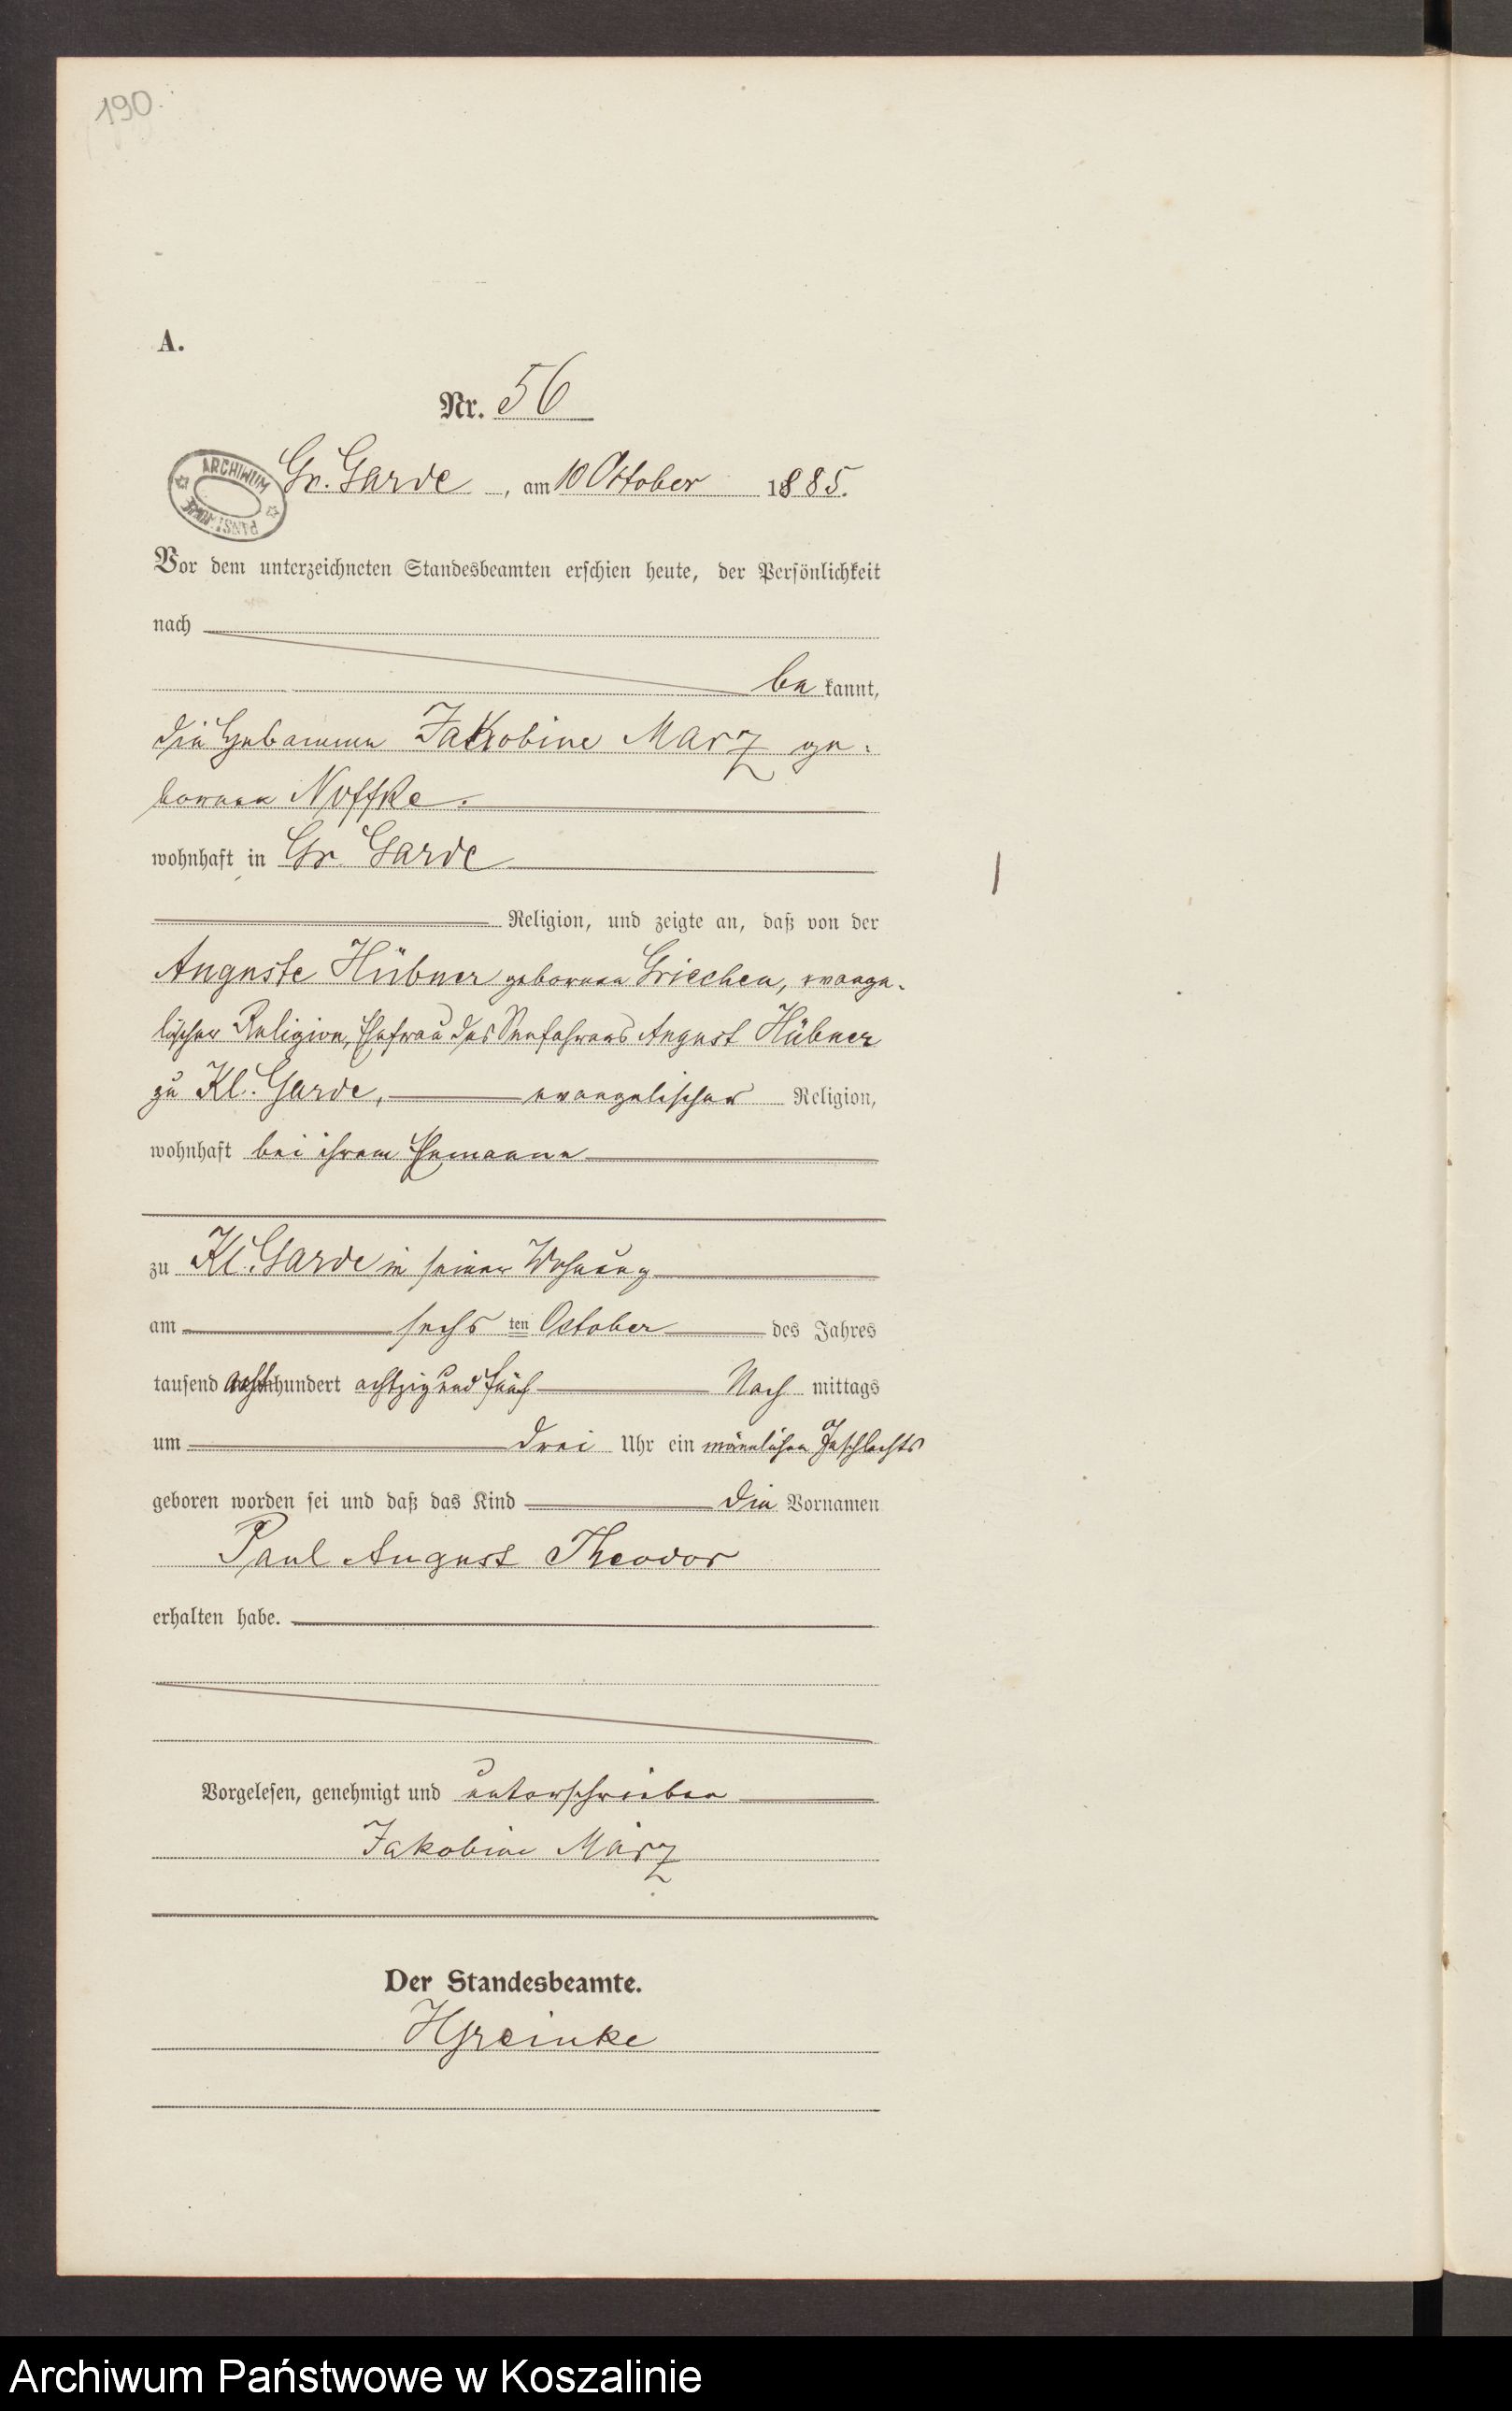 190.
A.
Nr. 56
ARCHIWUM PAŃSTWOWE
Gr. Garde, am 10 October 1885.
Vor dem unterzeichneten Standesbeamten erschien heute, der Persönlichkeit
nach
be kannt,
die Hebamme Jakobine März ge-
borene Noffke.
wohnhaft in Gr. Garde
Religion, und zeigte an, daß von der
Auguste Hübner geborene Griechen, evange-
lischer Religion, Ehefrau des Seefahrers August Hübner
zu Kl. Garde, evangelischer Religion,
wohnhaft bei ihrem Ehemanne
zu Kl. Garde in seiner Wohnung
am sechs ten October des Jahres
tausend achthundert achtzig und fünf Nach mittags
um drei Uhr ein männlichen Geschlechts
geboren worden sei und daß das Kind die Vornamen
Paul August Theodor
erhalten habe.
Vorgelesen, genehmigt und unterschrieben
Jakobine März
Der Standesbeamte.
HGreinke
Archiwum Państwowe w Koszalinie